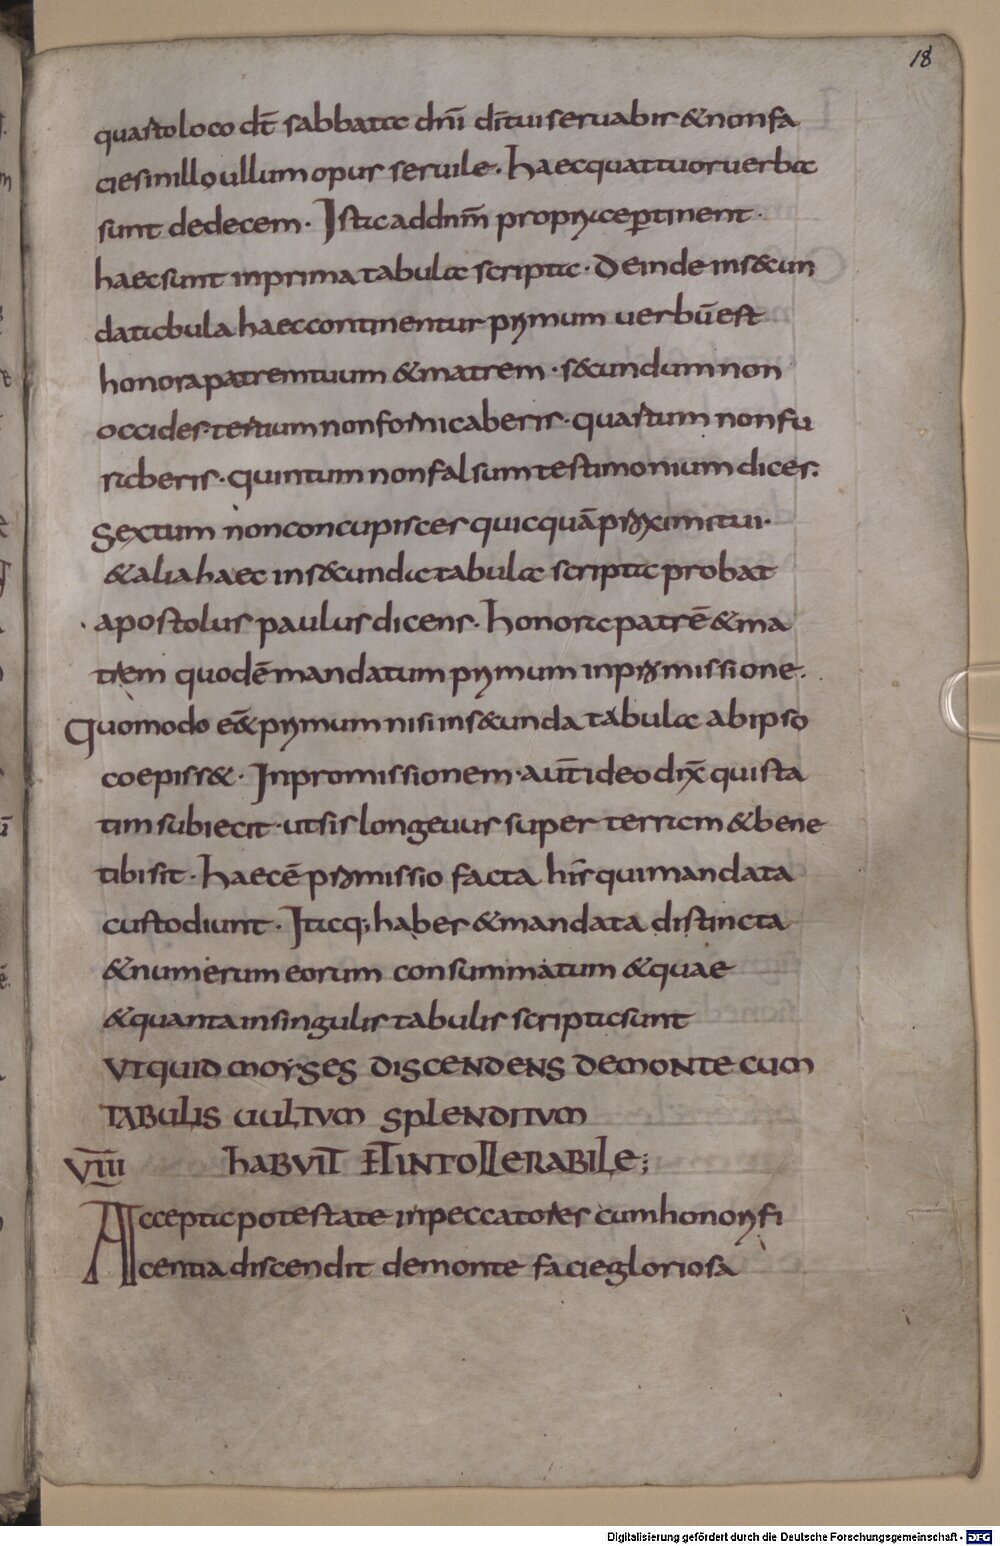 18
quarto loco dt̄ sabbata dn̄i dī tui seruabis & non fa
cies in illo ullum opus seruile. Haec quattuor uerba
sunt de decem. Ista ad dnm̄ propriae ꝑtinent.
haec sunt in prima tabula scripta. Deinde in s&cun
da tabula haec continentur primum uerbū est
honora patrem tuum & matrem. s&cundum non
occides. tertium non fornicaberis. quartum non fu
raberis. quintum non falsum testimonium dices:
Sextum non concupisces quicquā proximi tui.
& alia haec in s&cunda tabula scripta probat
apostolus paulus dicens. Honora patrē & ma
trem quod ē mandatum primum in promissione.
Quomodo e& primum nisi in s&cunda tabula ab ipso
coepiss&. In promissionem. aut̄ ideo dix̄ qui sta
tim subiecit. ut sis longeuus super terram & bene
tibi sit. Haec ē promissio facta his̄ qui mandata
custodiunt. Itaq; habes & mandata distincta
& numerum eorum consummatum & quae
& quanta in singulis tabulis scripta sunt
UT QUID MOYSES DISCENDENS DE MONTE CUM
TABULIS UULTUM SPLENDITUM
VIIII HABUIT ET INTOLLERABILE;
Accepta potestate in peccatores cum honorifi
centia discendit de monte facie gloriosa
Digitalisierung gefördert durch die Deutsche Forschungsgemeinschaft - DFG